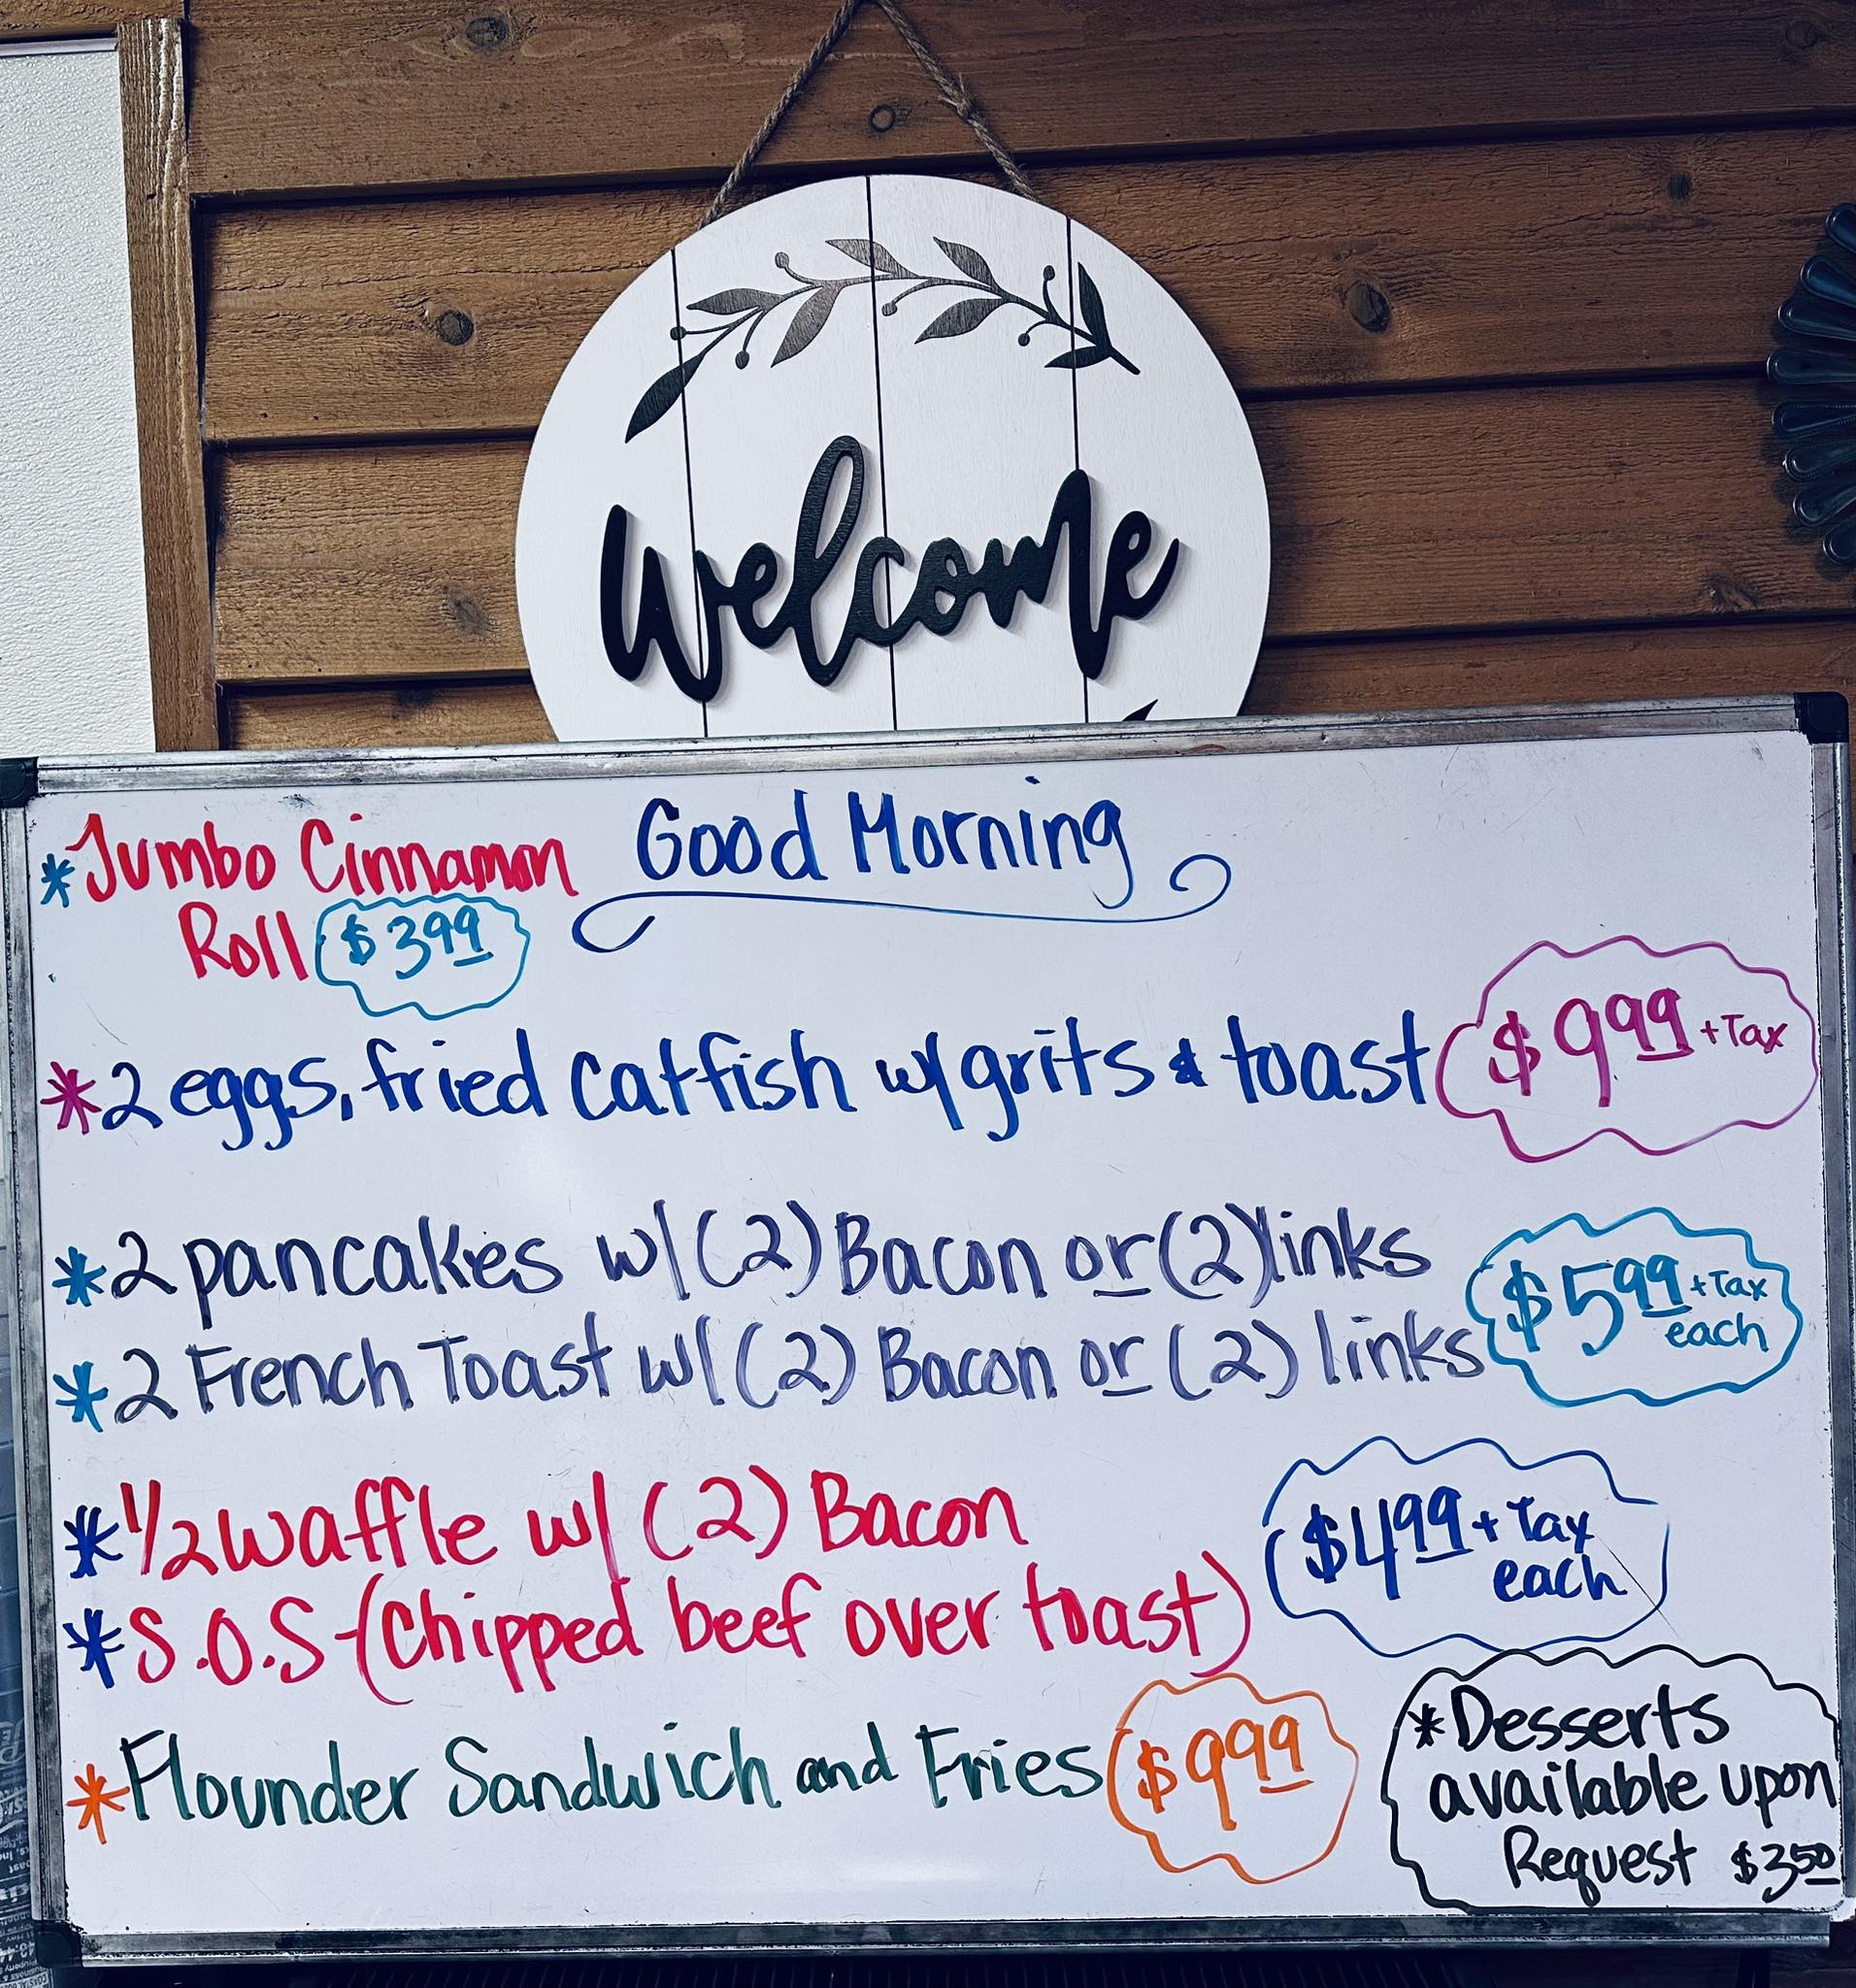 welcome
Good Morning
*Jumbo Cinnamon
Roll $3.99
*2 eggs, fried Catfish w/grits & toast $9.99 +Tax
*2 pancakes w/(2) Bacon or (2) links
*2 French Toast w/(2) Bacon or (2) links
$5.99 +Tax
each
*1/2 waffle w/ (2) Bacon
*S.O.S-(Chipped beef over toast)
$4.99 + Tax
each
*Flounder Sandwich and Fries $9.99
*Desserts
available upon
Request $3.50